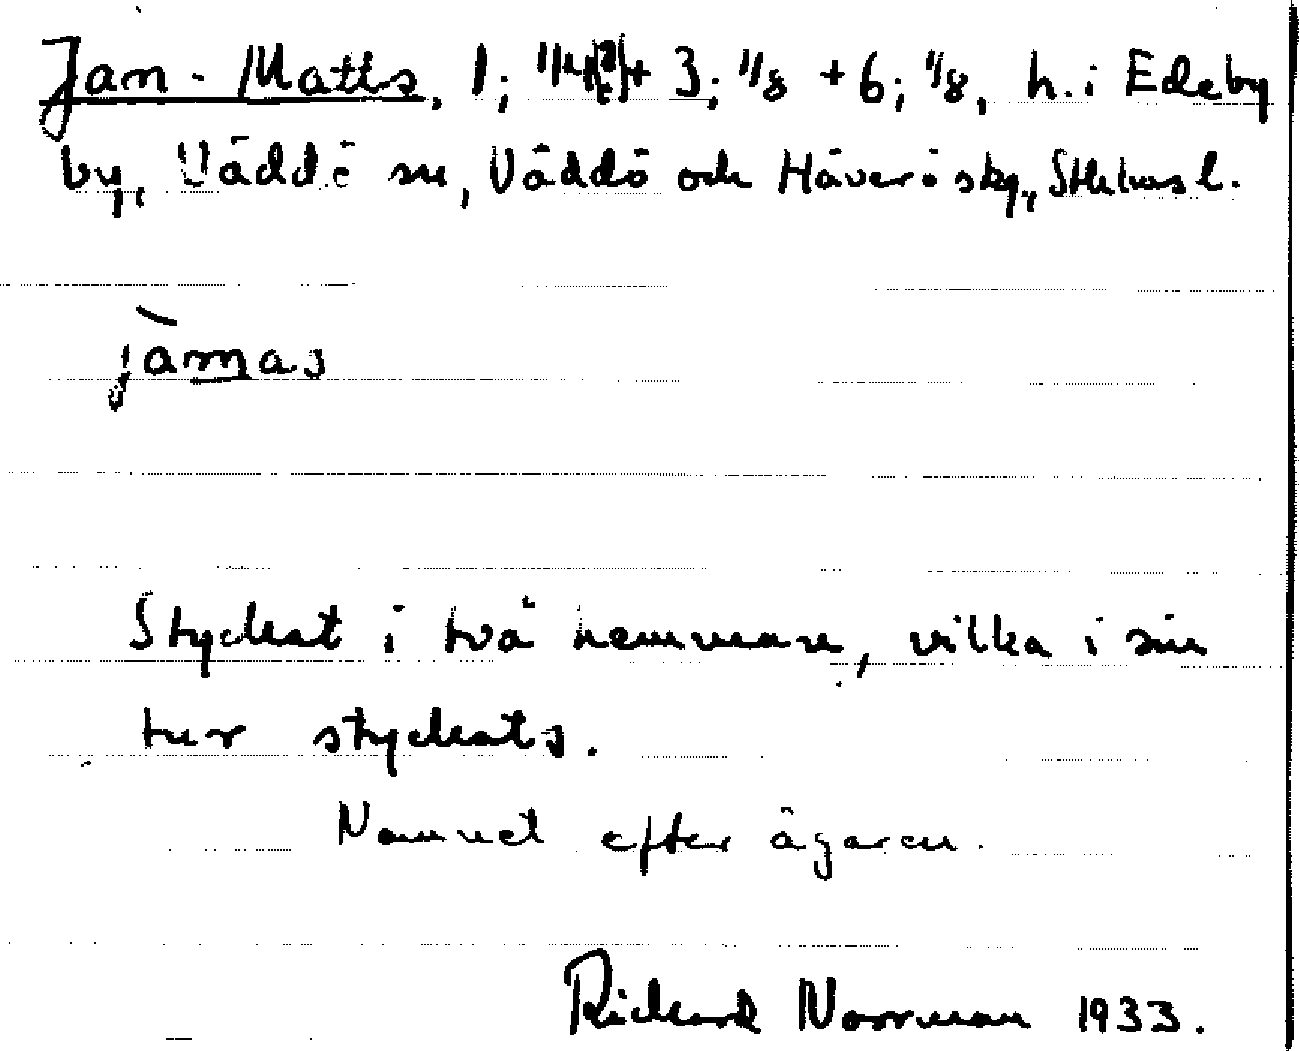 Jan-Matts, 1; 1/4 + 3; 1/8 + 6; 1/8, h. i Edeby
by, Väddö sn, Väddö och Häverö skg, Sthlms l.
jàmas
Styckat i två hemman, vilka i sin
tur styckats.
Namnet efter ägaren.
Rickard Norrman 1933.